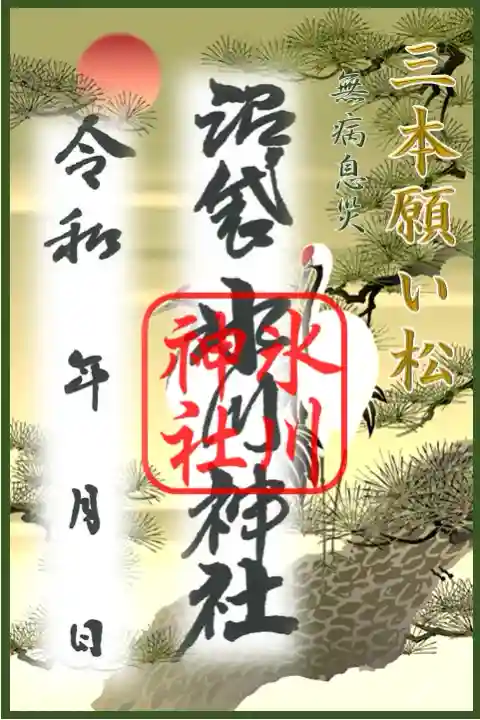 三本願い松
無病息災
沼袋氷川神社
氷川
神社
令和 年 月 日